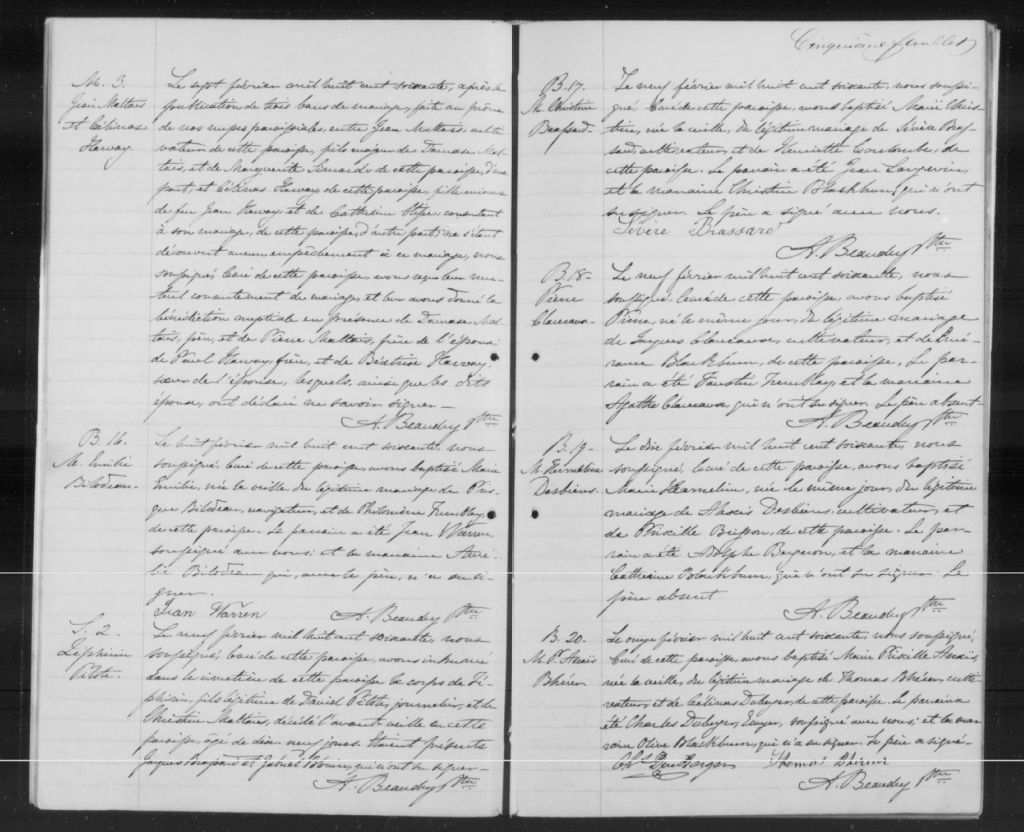 M. 3.
Jean Maltais
et Célinas
Harvay.
Le sept février mil huit cent soixante, après la
publication de trois bans de mariage, fait au prône
de nos messes paroissiales, entre Jean Maltais, culti-
vateur de cette paroisse, fils majeur de Damase Mal-
tais, et de Marguerite Simard, de cette paroisse, d'une
part, et Célinas Harvay de cette paroisse, fille mineure
de feu Jean Harvay, et de Catherine, consentant
à son mariage, de cette paroisse, d'autre part; ne s'étant
découvert aucun empêchement à ce mariage, nous
soussigné Curé de cette paroisse, avons reçu leur mu-
tuel consentement de mariage, et leur avons donné la
bénédiction nuptiale en présence de Damase Mal-
tais, père, et de Pierre Maltais, frère de l'époux;
de Harvay, frère, et de Béatrise Harvay,
sœur de l'épouse, lesquels, ainsi que les dits
époux, ont déclaré ne savoir signer —
A. Beaudry Ptre
B. 16.
M. Emilie
Bilodeau.
Le huit février mil huit cent soixante, nous
soussigné, Curé de cette paroisse, avons baptisé Marie
Emilie, née la veille, du légitime mariage de Pris-
que Bilodeau, navigateur, et de Philomène Tremblay,
de cette paroisse. Le parrain a été Jean Warren,
soussigné avec nous; et la marraine Auré-
lie Bilodeau qui, avec le père, n'a su si-
gner.
Jean Warren A. Beaudry Ptre
S. 2.
Zéphirin
Pilote.
Le neuf février mil huit cent soixante, nous
soussigné, Curé de cette paroisse, avons inhumé
dans le cimetière de cette paroisse le corps de Zé-
phirin, fils légitime de David Pilote, journalier, et de
Christine Maltais, décédé l'avant veille en cette
paroisse, âgé de dix neuf jours. Etaient présents
Jacques Brassard et Gabriel, qui n'ont su signer—
A. Beaudry Ptre
Cinquième feuillet
B. 17.
M. Christine
Brassard.
Le neuf février mil huit cent soixante, nous soussi-
gné Curé de cette paroisse, avons baptisé Marie Chris-
tine, née la veille, du légitime mariage de Sévère Bras-
sard, cultivateur, et de Henriette Coulombe, de
cette paroisse. Le parrain a été Jean Langevin,
et la marraine Christine Blackburn, qui n'ont
su signer. Le père a signé avec nous.
Sévère Brassard
A. Beaudry Ptre
B. 18-
Pierre
Claveau-
Le neuf février mil huit cent soixante, nous
soussigné, Curé de cette paroisse, avons baptisé
Pierre, né le même jour, du légitime mariage
de Jacques Claveau, cultivateur, et de
Blackburn, de cette paroisse. Le par-
rain a été Faustin Tremblay, et la marraine
Agathe Claveau, qui n'ont su signer. Le père absent
A. Beaudry Ptre
B. 19-
M. Hermeline
Desbiens.
Le dix février mil huit cent soixante, nous
soussigné, Curé de cette paroisse, avons baptisé
Marie Hermeline, née le même jour, du légitime
mariage de Alexis Desbiens, cultivateur, et
de Priscille Brisson, de cette paroisse. Le par-
rain a été Adolphe Bergeron, et la marraine
Catherine Blackburn, qui n'ont su signer. Le
père absent
A. Beaudry Ptre
B. 20.
M. P. Anaïs
Bhérer.
Le onze février mil huit cent soixante, nous soussigné,
Curé de cette paroisse, avons baptisé Marie Priscille Anaïs,
née la veille, du légitime mariage de Thomas Bhérer, culti-
vateur, et de Célinas Duberger, de cette paroisse. Le parrain a
été Charles Duberger, Ecuyer, soussigné avec nous; et la mar-
raine Olive Blackburn, qui n'a su signer. Le père a signé-
Chs DuBerger Thomas
A. Beaudry Ptre